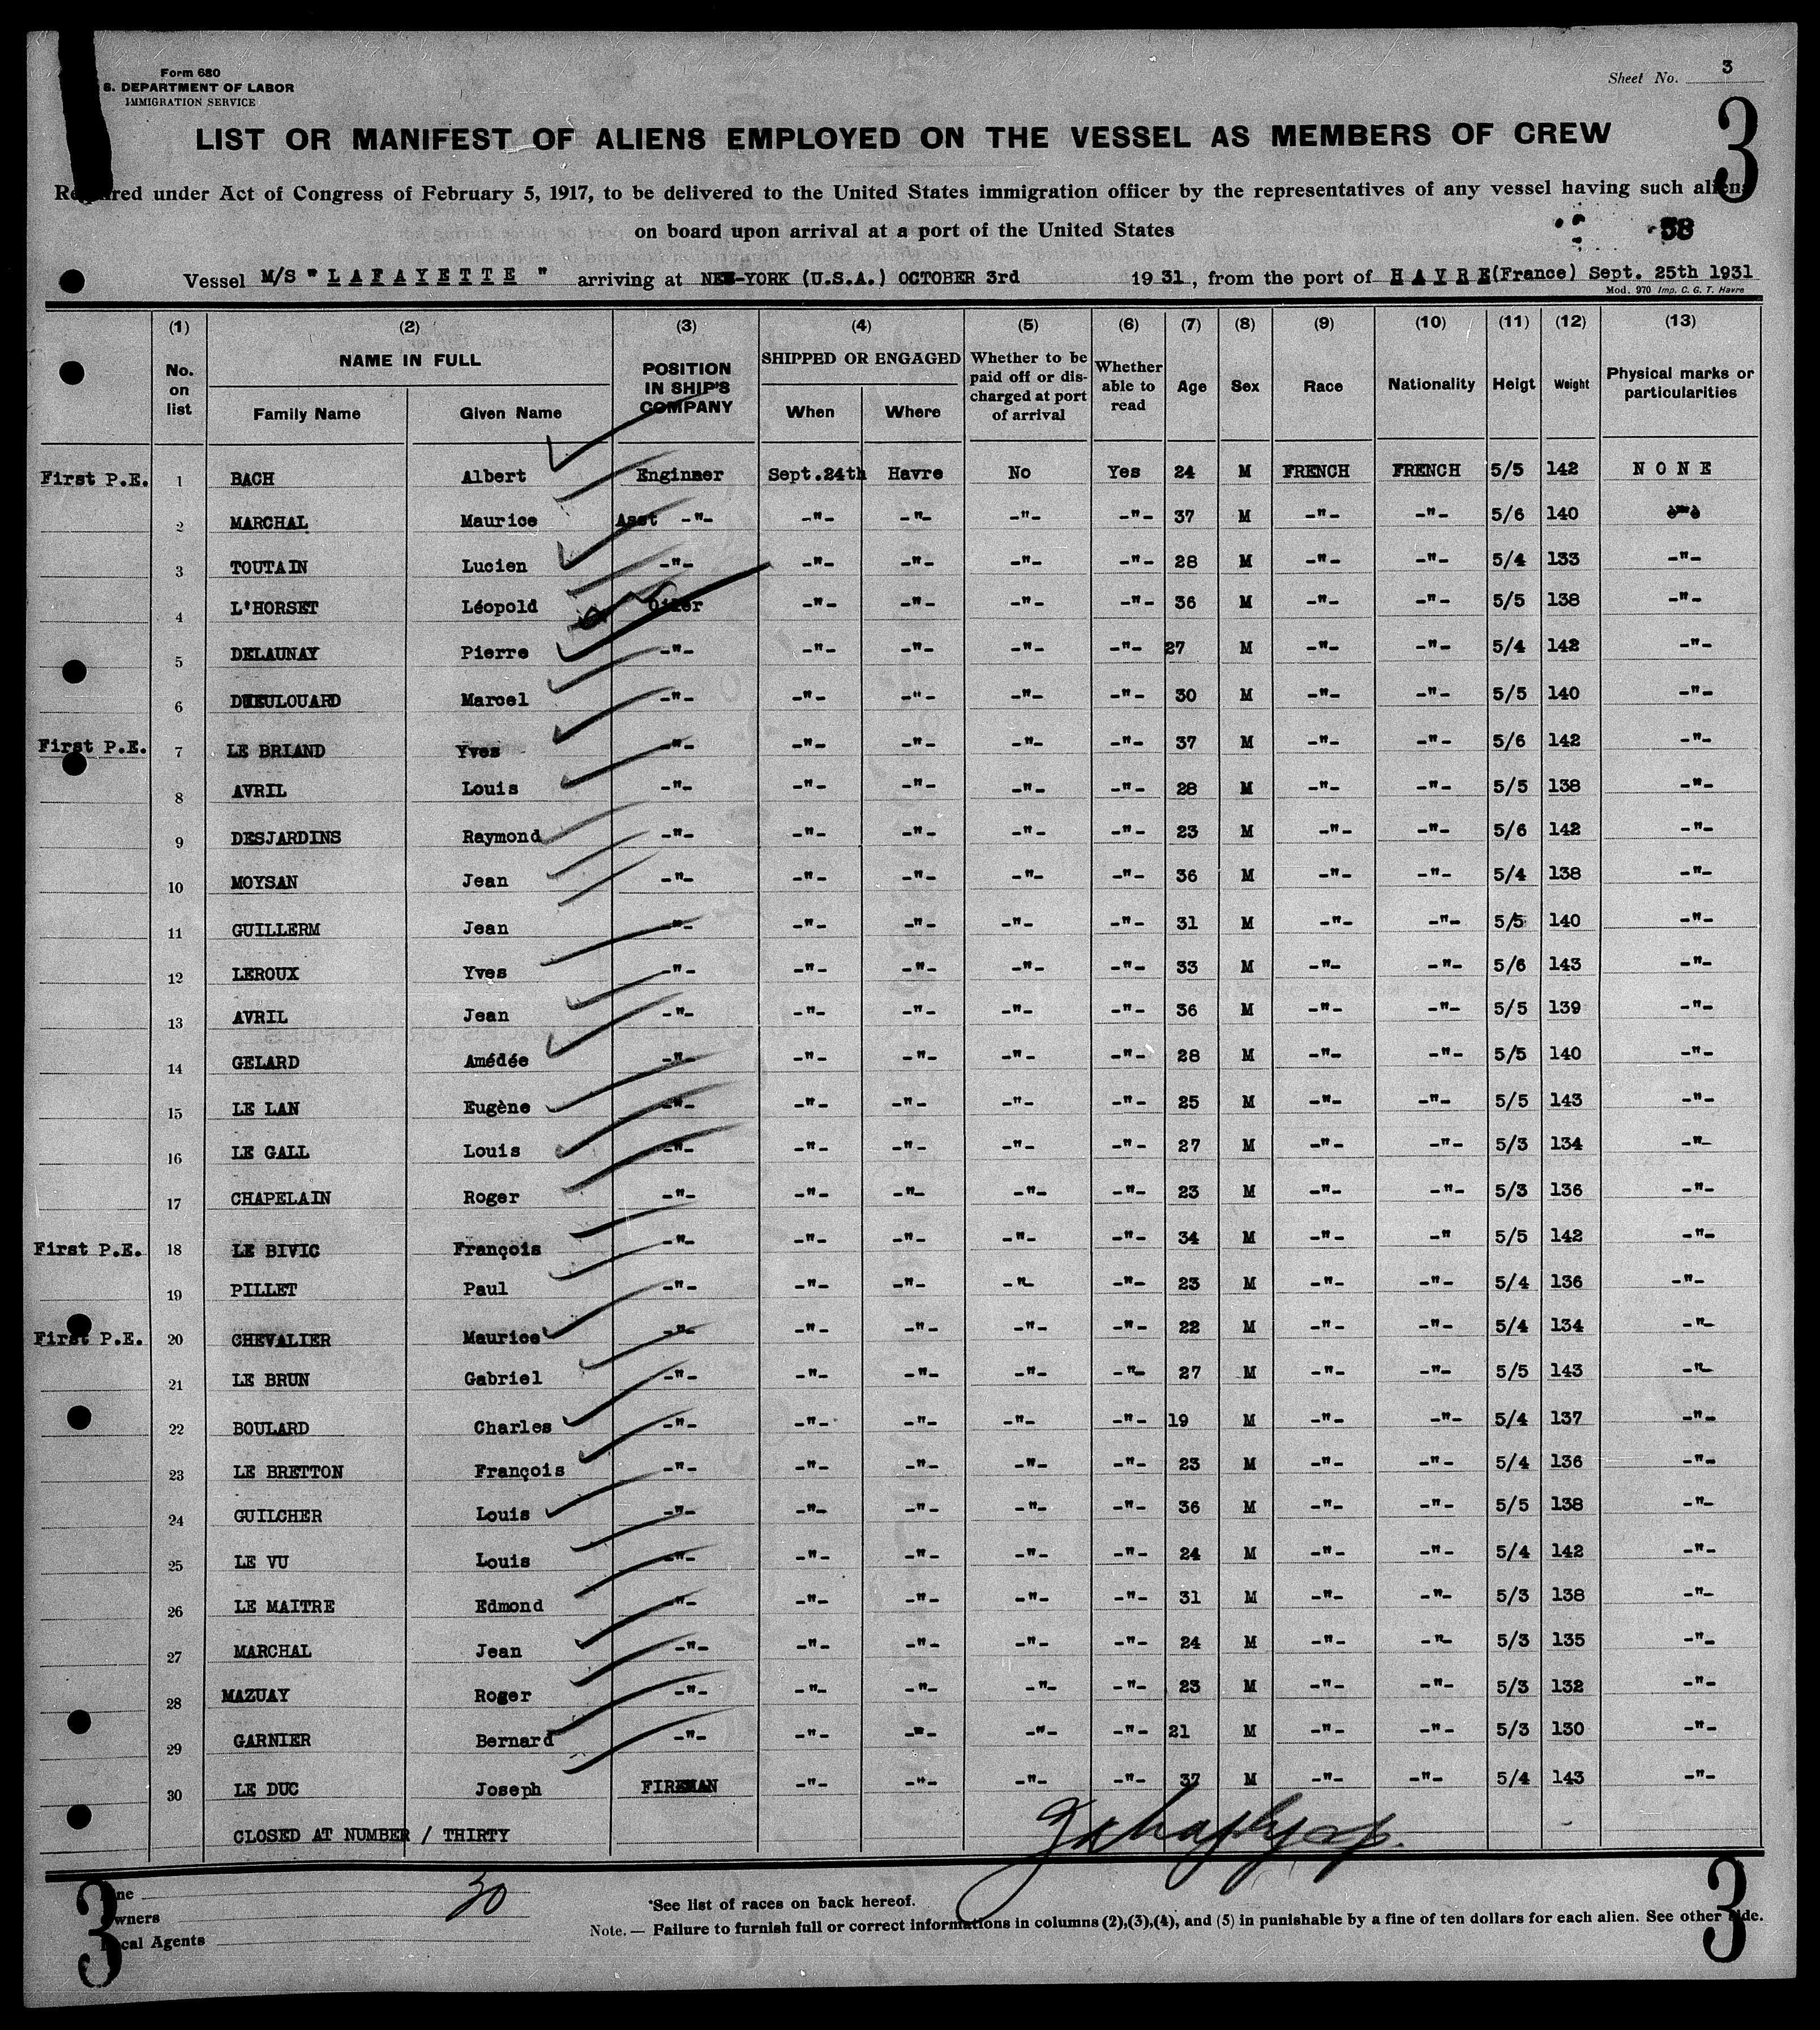 Form 680
S. DEPARTMENT OF LABOR
IMMIGRATION SERVICE
Sheet No. 3
3
LIST OR MANIFEST OF ALIENS EMPLOYED ON THE VESSEL AS MEMBERS OF CREW
Required under Act of Congress of February 5, 1917, to be delivered to the United States immigration officer by the representatives of any vessel having such aliens
on board upon arrival at a port of the United States
38
Vessel M/S " LAFAYETTE " arriving at NEW-YORK (U.S.A.) OCTOBER 3rd 1931, from the port of HAVRE (France) Sept. 25th 1931
Mod. 970 Imp. C. G. T. Havre
(1) (2) (3) (4) (5) (6) (7) (8) (9) (10) (11) (12) (13)
No. on list NAME IN FULL Family Name Given Name POSITION IN SHIP'S COMPANY SHIPPED OR ENGAGED When Where Whether to be paid off or discharged at port of arrival Whether able to read Age Sex Race Nationality Heigt Weight Physical marks or particularities
First P.E. 1 BACH Albert Enginner Sept.24th Havre No Yes 24 M FRENCH FRENCH 5/5 142 NONE
2 MARCHAL Maurice Asst -"- -"- -"- -"- -"- 37 M -"- -"- 5/6 140 -"-
3 TOUTAIN Lucien -"- -"- -"- -"- -"- 28 M -"- -"- 5/4 133 -"-
4 L'HORSET Léopold Oiler -"- -"- -"- -"- 36 M -"- -"- 5/5 138 -"-
5 DELAUNAY Pierre -"- -"- -"- -"- -"- 27 M -"- -"- 5/4 142 -"-
6 DIEULOUARD Marcel -"- -"- -"- -"- -"- 30 M -"- -"- 5/5 140 -"-
First P.E. 7 LE BRIAND Yves -"- -"- -"- -"- -"- 37 M -"- -"- 5/6 142 -"-
8 AVRIL Louis -"- -"- -"- -"- -"- 28 M -"- -"- 5/5 138 -"-
9 DESJARDINS Raymond -"- -"- -"- -"- -"- 23 M -"- -"- 5/6 142 -"-
10 MOYSAN Jean -"- -"- -"- -"- -"- 36 M -"- -"- 5/4 138 -"-
11 GUILLERM Jean -"- -"- -"- -"- -"- 31 M -"- -"- 5/5 140 -"-
12 LEROUX Yves -"- -"- -"- -"- -"- 33 M -"- -"- 5/6 143 -"-
13 AVRIL Jean -"- -"- -"- -"- -"- 36 M -"- -"- 5/5 139 -"-
14 GELARD Amédée -"- -"- -"- -"- -"- 28 M -"- -"- 5/5 140 -"-
15 LE LAN Eugène -"- -"- -"- -"- -"- 25 M -"- -"- 5/5 143 -"-
16 LE GALL Louis -"- -"- -"- -"- -"- 27 M -"- -"- 5/3 134 -"-
17 CHAPELAIN Roger -"- -"- -"- -"- -"- 23 M -"- -"- 5/3 136 -"-
First P.E. 18 LE BIVIC François -"- -"- -"- -"- -"- 34 M -"- -" 5/5 142 -"-
19 PILLET Paul -"- -"- -"- -"- -"- 23 M -"- -"- 5/4 136 -"-
First P.E. 20 CHEVALIER Maurice -"- -"- -"- -"- -"- 22 M -"- -"- 5/4 134 -"-
21 LE BRUN Gabriel -"- -"- -"- -"- -"- 27 M -"- -"- 5/5 143 -"-
22 BOULARD Charles -"- -"- -"- -"- -"- 19 M -"- -"- 5/4 137 -"-
23 LE BRETTON François -"- -"- -"- -"- -"- 23 M -"- -"- 5/4 136 -"-
24 GUILCHER Louis -"- -"- -"- -"- -"- 36 M -"- -"- 5/5 138 -"-
25 LE VU Louis -"- -"- -"- -"- -"- 24 M -"- -"- 5/4 142 -"-
26 LE MAITRE Edmond -"- -"- -"- -"- -"- 31 M -"- -"- 5/3 138 -"-
27 MARCHAL Jean -"- -"- -"- -"- -"- 24 M -"- -"- 5/3 135 -"-
28 MAZUAY Roger -"- -"- -"- -"- -"- 23 M -"- -"- 5/3 132 -"-
29 GARNIER Bernard -"- -"- -"- -"- -"- 21 M -"- -"- 5/3 130 -"-
30 LE DUC Joseph FIREMAN -"- -"- -"- -"- 37 M -"- -"- 5/4 143 -"-
CLOSED AT NUMBER / THIRTY
3 30 3
Line
Owners
Local Agents
*See list of races on back hereof.
Note. — Failure to furnish full or correct informations in columns (2),(3),(4), and (5) in punishable by a fine of ten dollars for each alien. See other side.